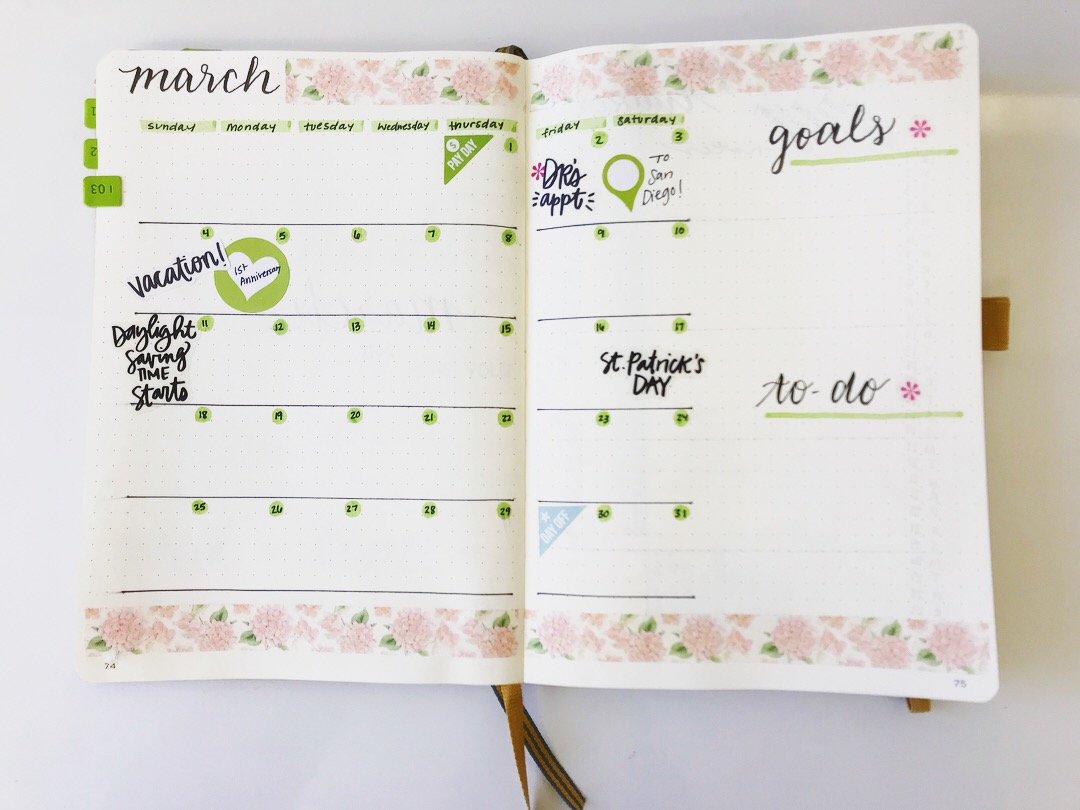 march
sunday monday tuesday wednesday thursday friday saturday
1 2 3
$ PAY DAY
DR's
appt
To
San
Diego!
4 5 6 7 8 9 10
vacation!
1st
Anniversary
11 12 13 14 15 16 17
Daylight
Saving
TIME
Starts
St. Patrick's
DAY
18 19 20 21 22 23 24
25 26 27 28 29 30 31
DAY OFF
goals
to-do
1
2
103
74
75